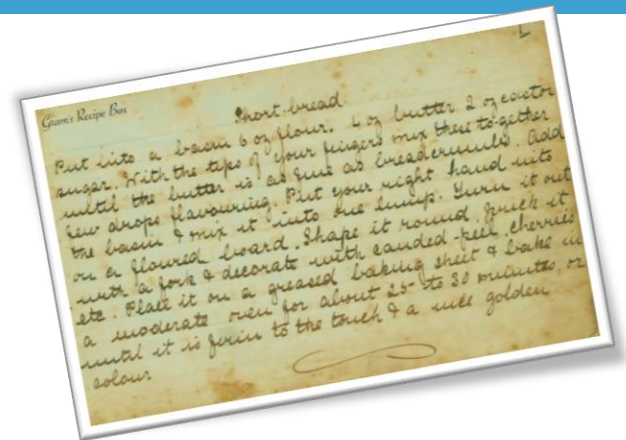 Gram's Recipe Box
1
Short-bread.
Put into a basin 6 oz flour. 4 oz butter 2 oz castor
sugar. With the tips of your fingers mix these to-gether
until the butter is as fine as breadcrumbs. Add
few drops flavouring. Put your right hand into
the basin & mix it into one lump. Turn it out
on a floured board. Shape it round, prick it
with a fork & decorate with candied-peel, cherries
etc. Place it on a greased baking sheet & bake in
a moderate oven for about 25- to 30 minutes, or
until it is firm to the touch & a nice golden
colour